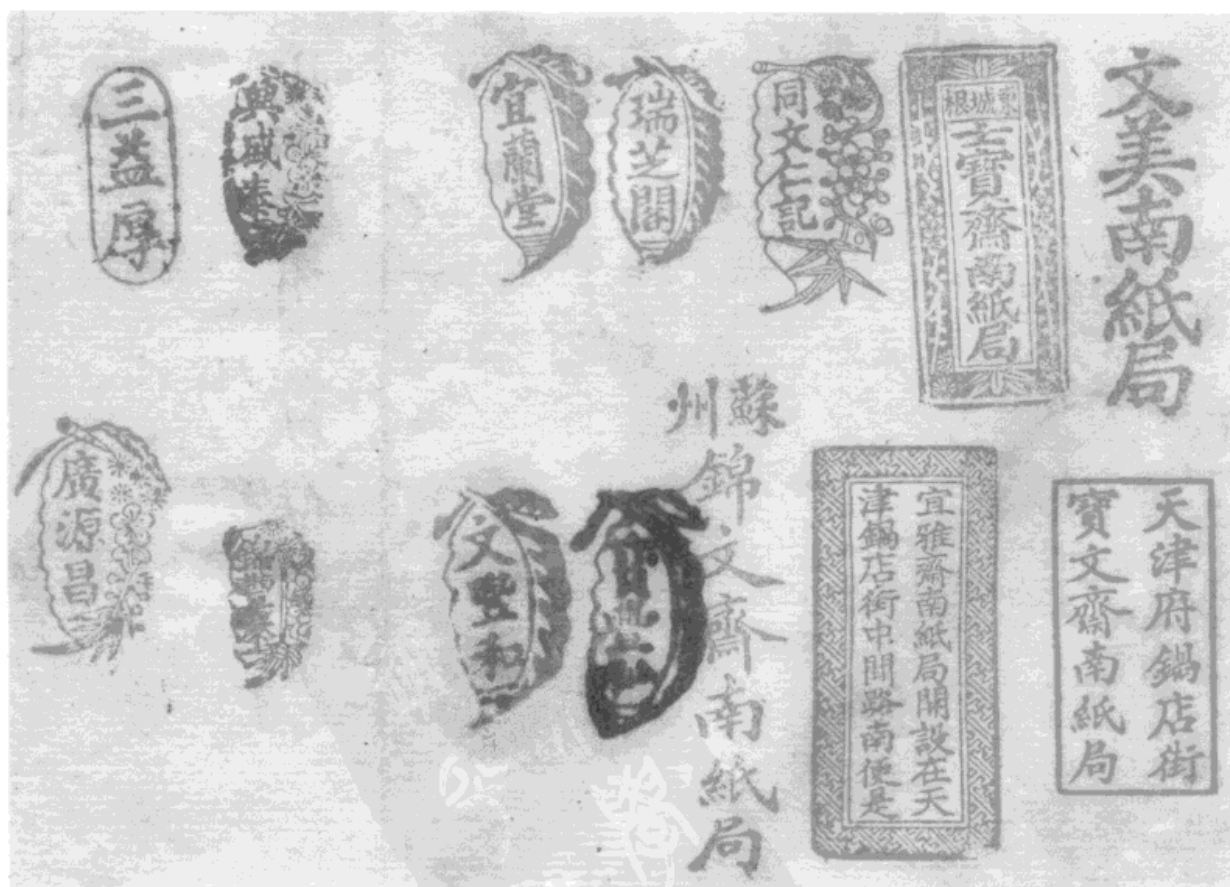 文美南紙局
東城根
士寶齋南紙局
同文仁記
瑞芝閣
宜蘭堂
興盛泰
三益厚
天津府鍋店街
寶文齋南紙局
宜雅齋南紙局開設在天
津鍋店街中間路南便是
蘇州
錦文齋南紙局
文豐和
廣源昌